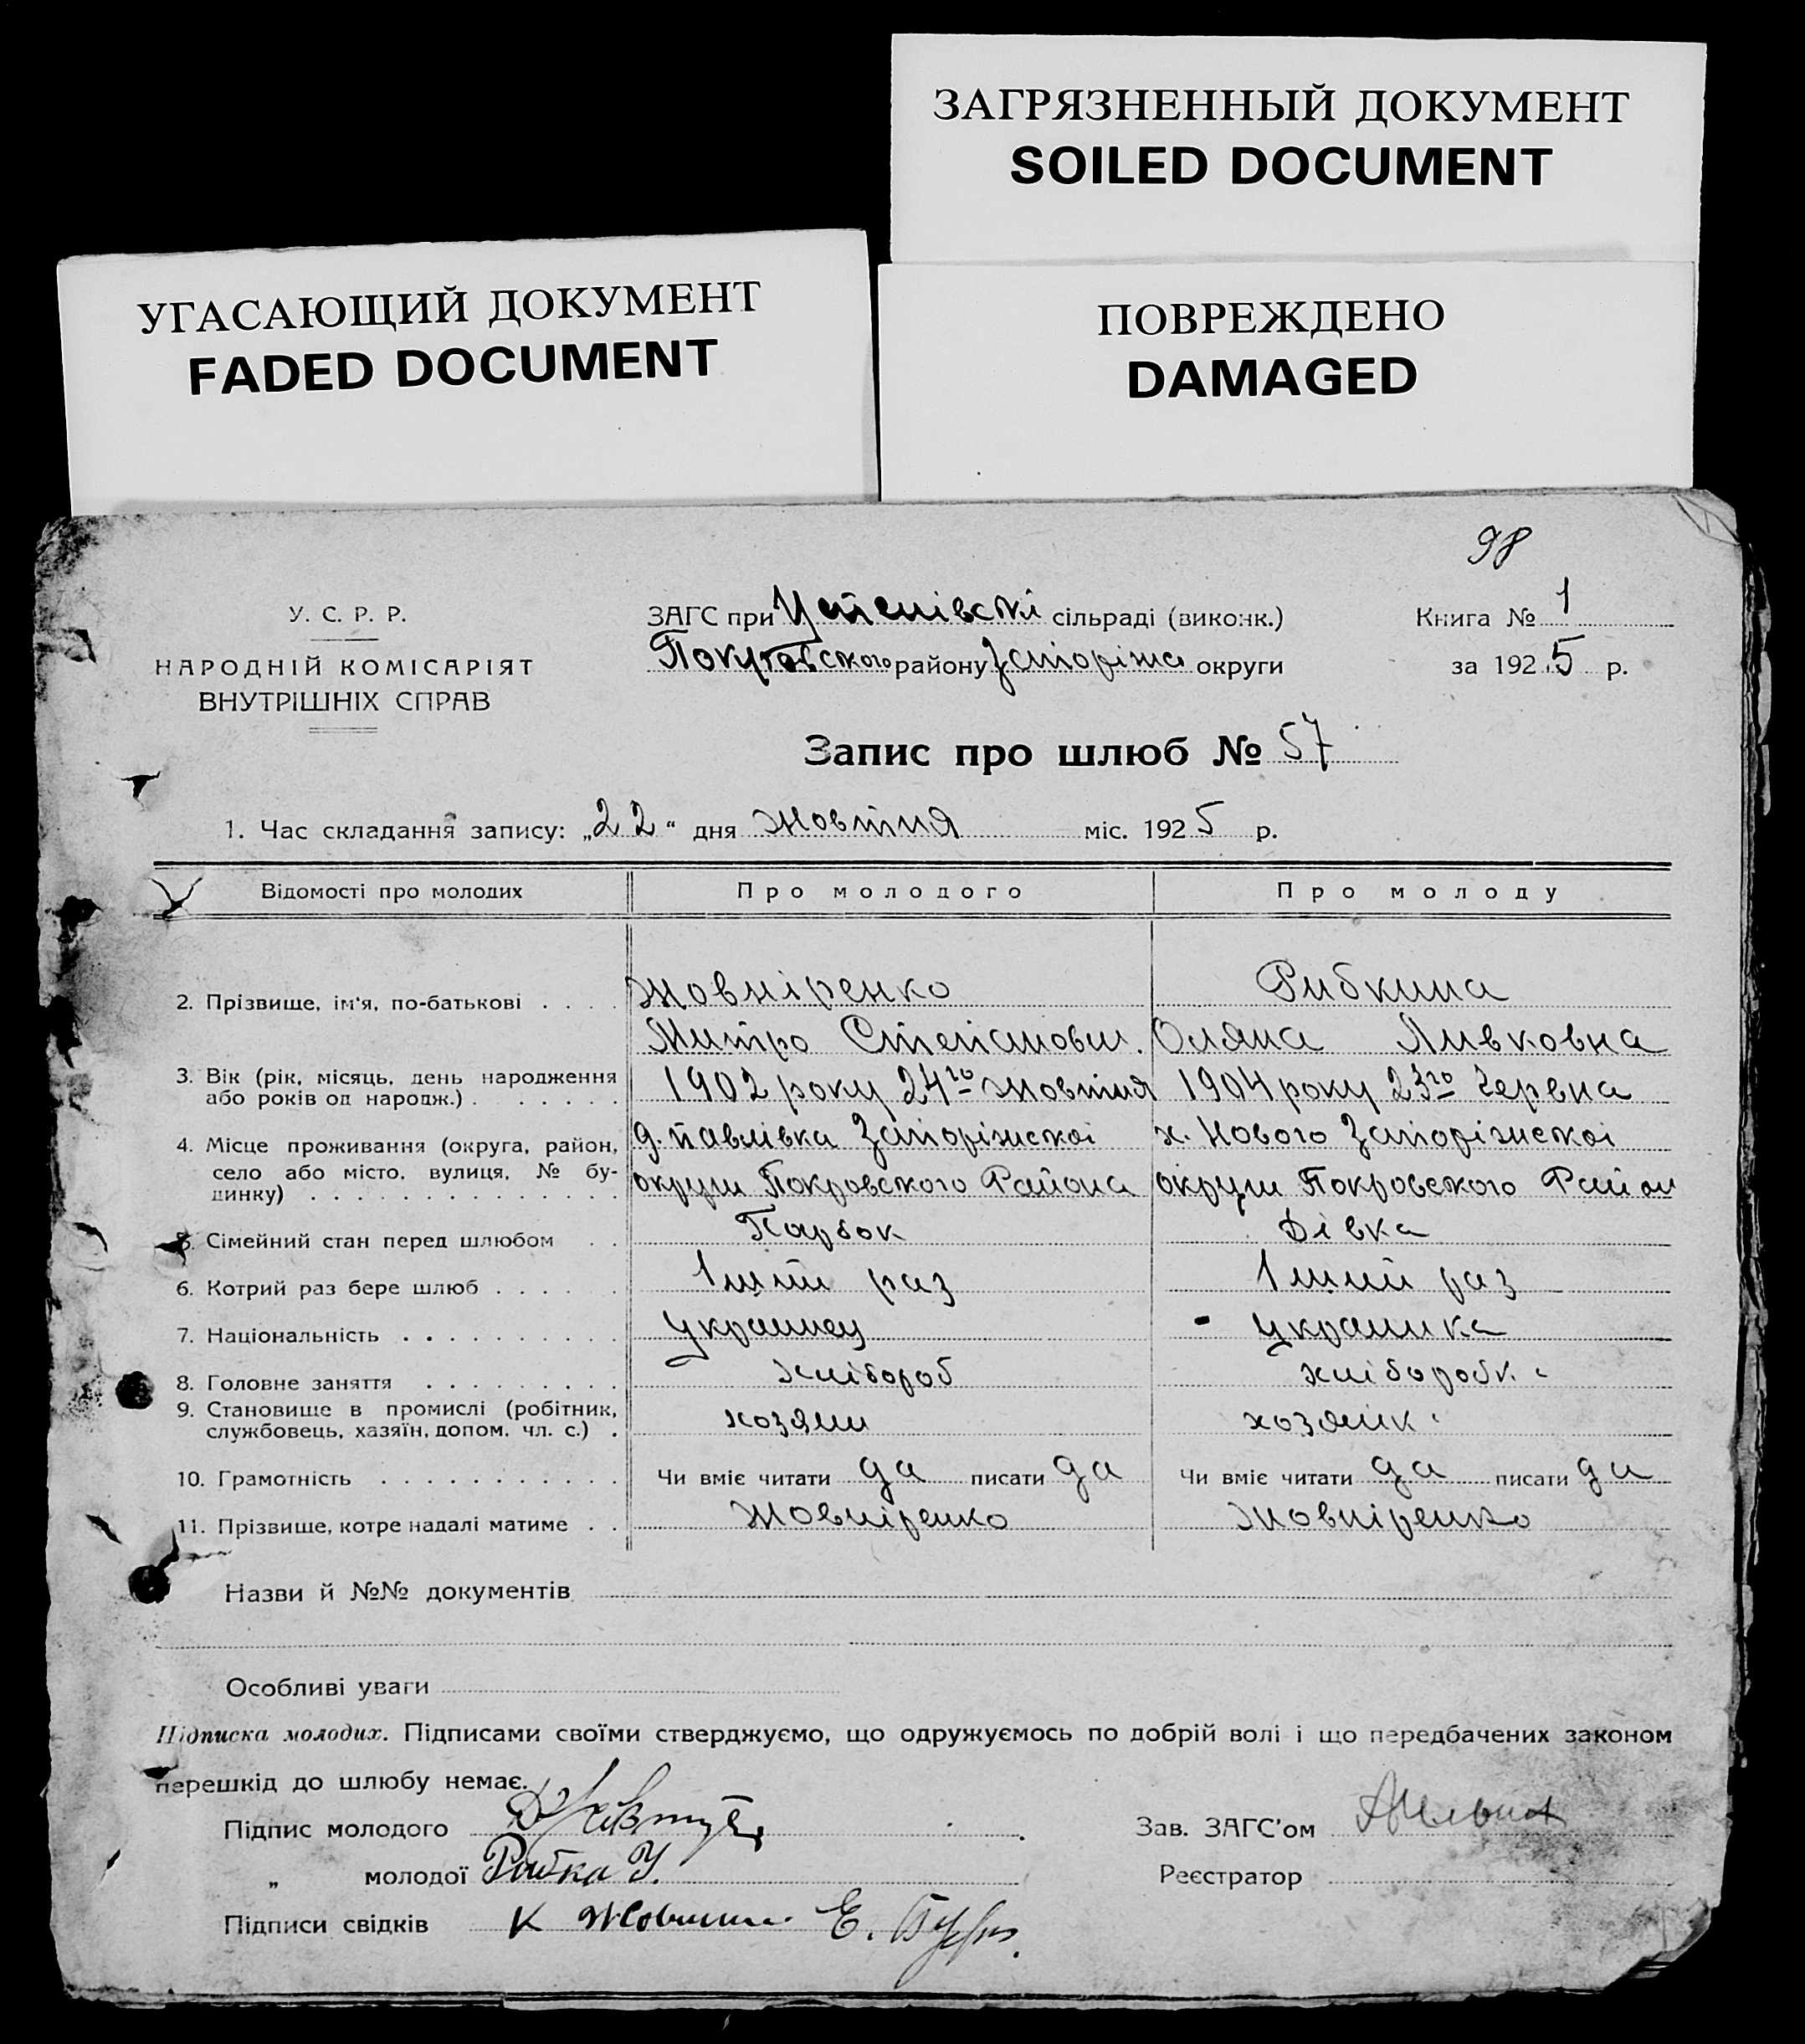 ЗАГРЯЗНЕННЫЙ ДОКУМЕНТ
SOILED DOCUMENT
УГАСАЮЩИЙ ДОКУМЕНТ
FADED DOCUMENT
ПОВРЕЖДЕНО
DAMAGED
98
У. С. Р. Р.
НАРОДНІЙ КОМІСАРІЯТ
ВНУТРІШНІХ СПРАВ
ЗАГС при сільраді (виконк.)
району округи
Книга № 1
за 1925 р.
Запис про шлюб № 57
1. Час складання запису: „22“ дня жовтня міс. 1925 р.
Відомості про молодих Про молодого Про молоду
2. Прізвище, ім'я, по-батькові . . . . Жовніренко Рибкина
Митро Степанович. Оляна Ливковна
3. Вік (рік, місяць, день народження
або років од народж.) . . . . . . 1902 року 24го жовтня 1904 року 23го Червна
4. Місце проживання (округа, район, д. Павлівка Запоріжскоі х. Нового Запоріжскоі
село або місто, вулиця, № бу-
динку) . . . . . . . . . . . . . . округи Покровского Района округи Покровского Район
5. Сімейний стан перед шлюбом . . Парбок Дівка
6. Котрий раз бере шлюб . . . . . . 1ший раз 1ший раз
7. Національність . . . . . . . . . . Украинец Украинка
8. Головне заняття . . . . . . . . . хлібороб хліборобка
9. Становище в промислі (робітник,
службовець, хазяїн, допом. чл. с.) . хозяин хозяйка
10. Грамотність . . . . . . . . . . . Чи вміє читати да писати да Чи вміє читати да писати да
11. Прізвище, котре надалі матиме . . Жовніренко Жовніренко
Назви й №№ документів
Особливі уваги
Підписка молодих. Підписами своїми стверджуємо, що одружуємось по добрій волі і що передбачених законом
перешкід до шлюбу немає.
Підпис молодого
Зав. ЗАГС'ом
„ молодої Рибка У.
Реєстратор
Підписи свідків К Е.